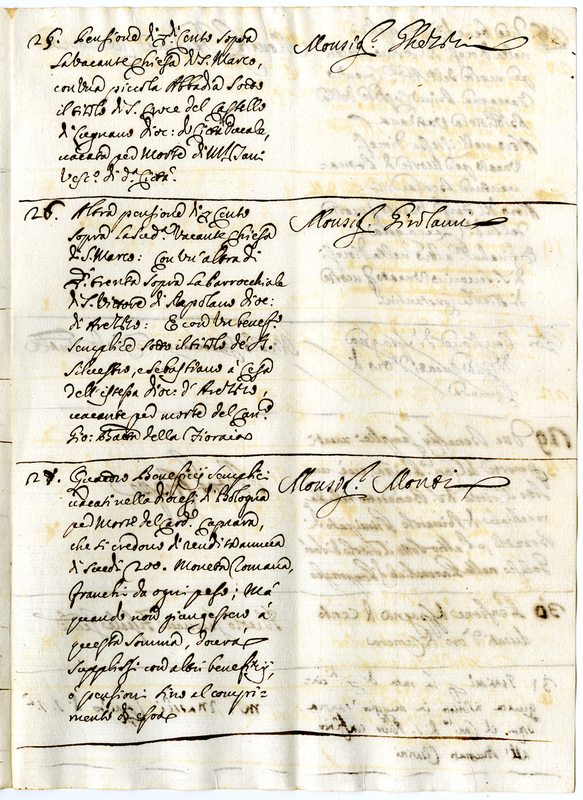 25. Pensione di Cento sopra
la vacante Chiesa di S. Marco,
con una piccola Abbadia sotto
il titolo di S. Croce del Castello
di dioc: di Città Ducale,
vacata per Morte di
Vesc.º di d.ª Città.
Monsig.r Ghezzi
26. Altra pensione di Cento
sopra la Sud.ª Vacante Chiesa
di S. Marco: Con un'altra di
trenta sopra la Parrocchiale
di S. Vittore di Rapolano dioc:
di Arezzo: E con un benef.º
semplice sotto il titolo de SS.
Silvestro, e Sebastiano à
dell'istessa dioc: d'Arezzo,
vacante per morte del Can.º
Gio: Batta della Fioraia
Monsig.r Girolami
27. Quattro Beneficij semplici
vacati nella diocesi di Bologna
per Morte del Caprara,
che si credono di rendita annua
di Scudi 200. Moneta Romana,
franchi da ogni peso; Mà
quando non giungessero à
questa somma, dovrà
supplirsi con altri benefizij,
ò pensioni fino al compi-
mento di essa
Monsig.r Monti